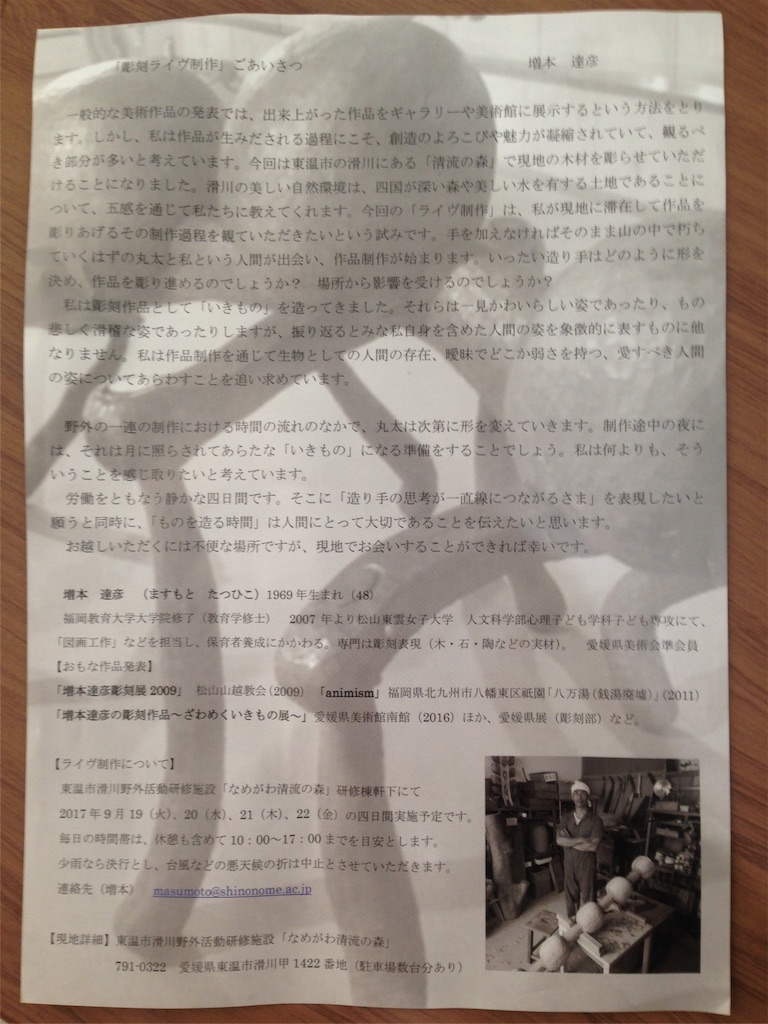 「彫刻ライヴ制作」ごあいさつ　増本　達彦
一般的な美術作品の発表では、出来上がった作品をギャラリーや美術館に展示するという方法をとり
ます。しかし、私は作品が生みだされる過程にこそ、創造のよろこびや魅力が凝縮されていて、観るべ
き部分が多いと考えています。今回は東温市の滑川にある「清流の森」で現地の木材を彫らせていただ
けることになりました。滑川の美しい自然環境は、四国が深い森や美しい水を有する土地であることに
ついて、五感を通じて私たちに教えてくれます。今回の「ライヴ制作」は、私が現地に滞在して作品を
彫りあげるその制作過程を観ていただきたいという試みです。手を加えなければそのまま山の中で朽ち
ていくはずの丸太と私という人間が出会い、作品制作が始まります。いったい造り手はどのように形を
決め、作品を彫り進めるのでしょうか？　場所から影響を受けるのでしょうか？
私は彫刻作品として「いきもの」を造ってきました。それらは一見かわいらしい姿であったり、もの
悲しく滑稽な姿であったりしますが、振り返るとみな私自身を含めた人間の姿を象徴的に表すものに他
なりません。私は作品制作を通じて生物としての人間の存在、曖昧でどこか弱さを持つ、愛すべき人間
の姿についてあらわすことを追い求めています。
野外の一連の制作における時間の流れのなかで、丸太は次第に形を変えていきます。制作途中の夜に
は、それは月に照らされてあらたな「いきもの」になる準備をすることでしょう。私は何よりも、そう
いうことを感じ取りたいと考えています。
労働をともなう静かな四日間です。そこに「造り手の思考が一直線につながるさま」を表現したいと
願うと同時に、「ものを造る時間」は人間にとって大切であることを伝えたいと思います。
お越しいただくには不便な場所ですが、現地でお会いすることができれば幸いです。
増本　達彦　（ますもと　たつひこ）1969 年生まれ（48）
福岡教育大学大学院修了（教育学修士）　2007 年より松山東雲女子大学　人文科学部心理子ども学科子ども専攻にて、
「図画工作」などを担当し、保育者養成にかかわる。専門は彫刻表現（木・石・陶などの実材）。　愛媛県美術会準会員
【おもな作品発表】
「増本達彦彫刻展 2009」　松山山越教会（2009）「animism」福岡県北九州市八幡東区祇園「八万湯（銭湯廃墟）」（2011）
「増本達彦の彫刻作品～ざわめくいきもの展～」愛媛県美術館南館（2016）ほか、愛媛県展（彫刻部）など。
【ライヴ制作について】
東温市滑川野外活動研修施設「なめがわ清流の森」研修棟軒下にて
2017 年 9 月 19（火）、20（水）、21（木）、22（金）の四日間実施予定です。
毎日の時間帯は、休憩も含めて 10：00～17：00 までを目安とします。
少雨なら決行とし、台風などの悪天候の折は中止とさせていただきます。
連絡先（増本）　masumoto@shinonome.ac.jp
【現地詳細】東温市滑川野外活動研修施設「なめがわ清流の森」
791-0322　愛媛県東温市滑川甲 1422 番地（駐車場数台分あり）